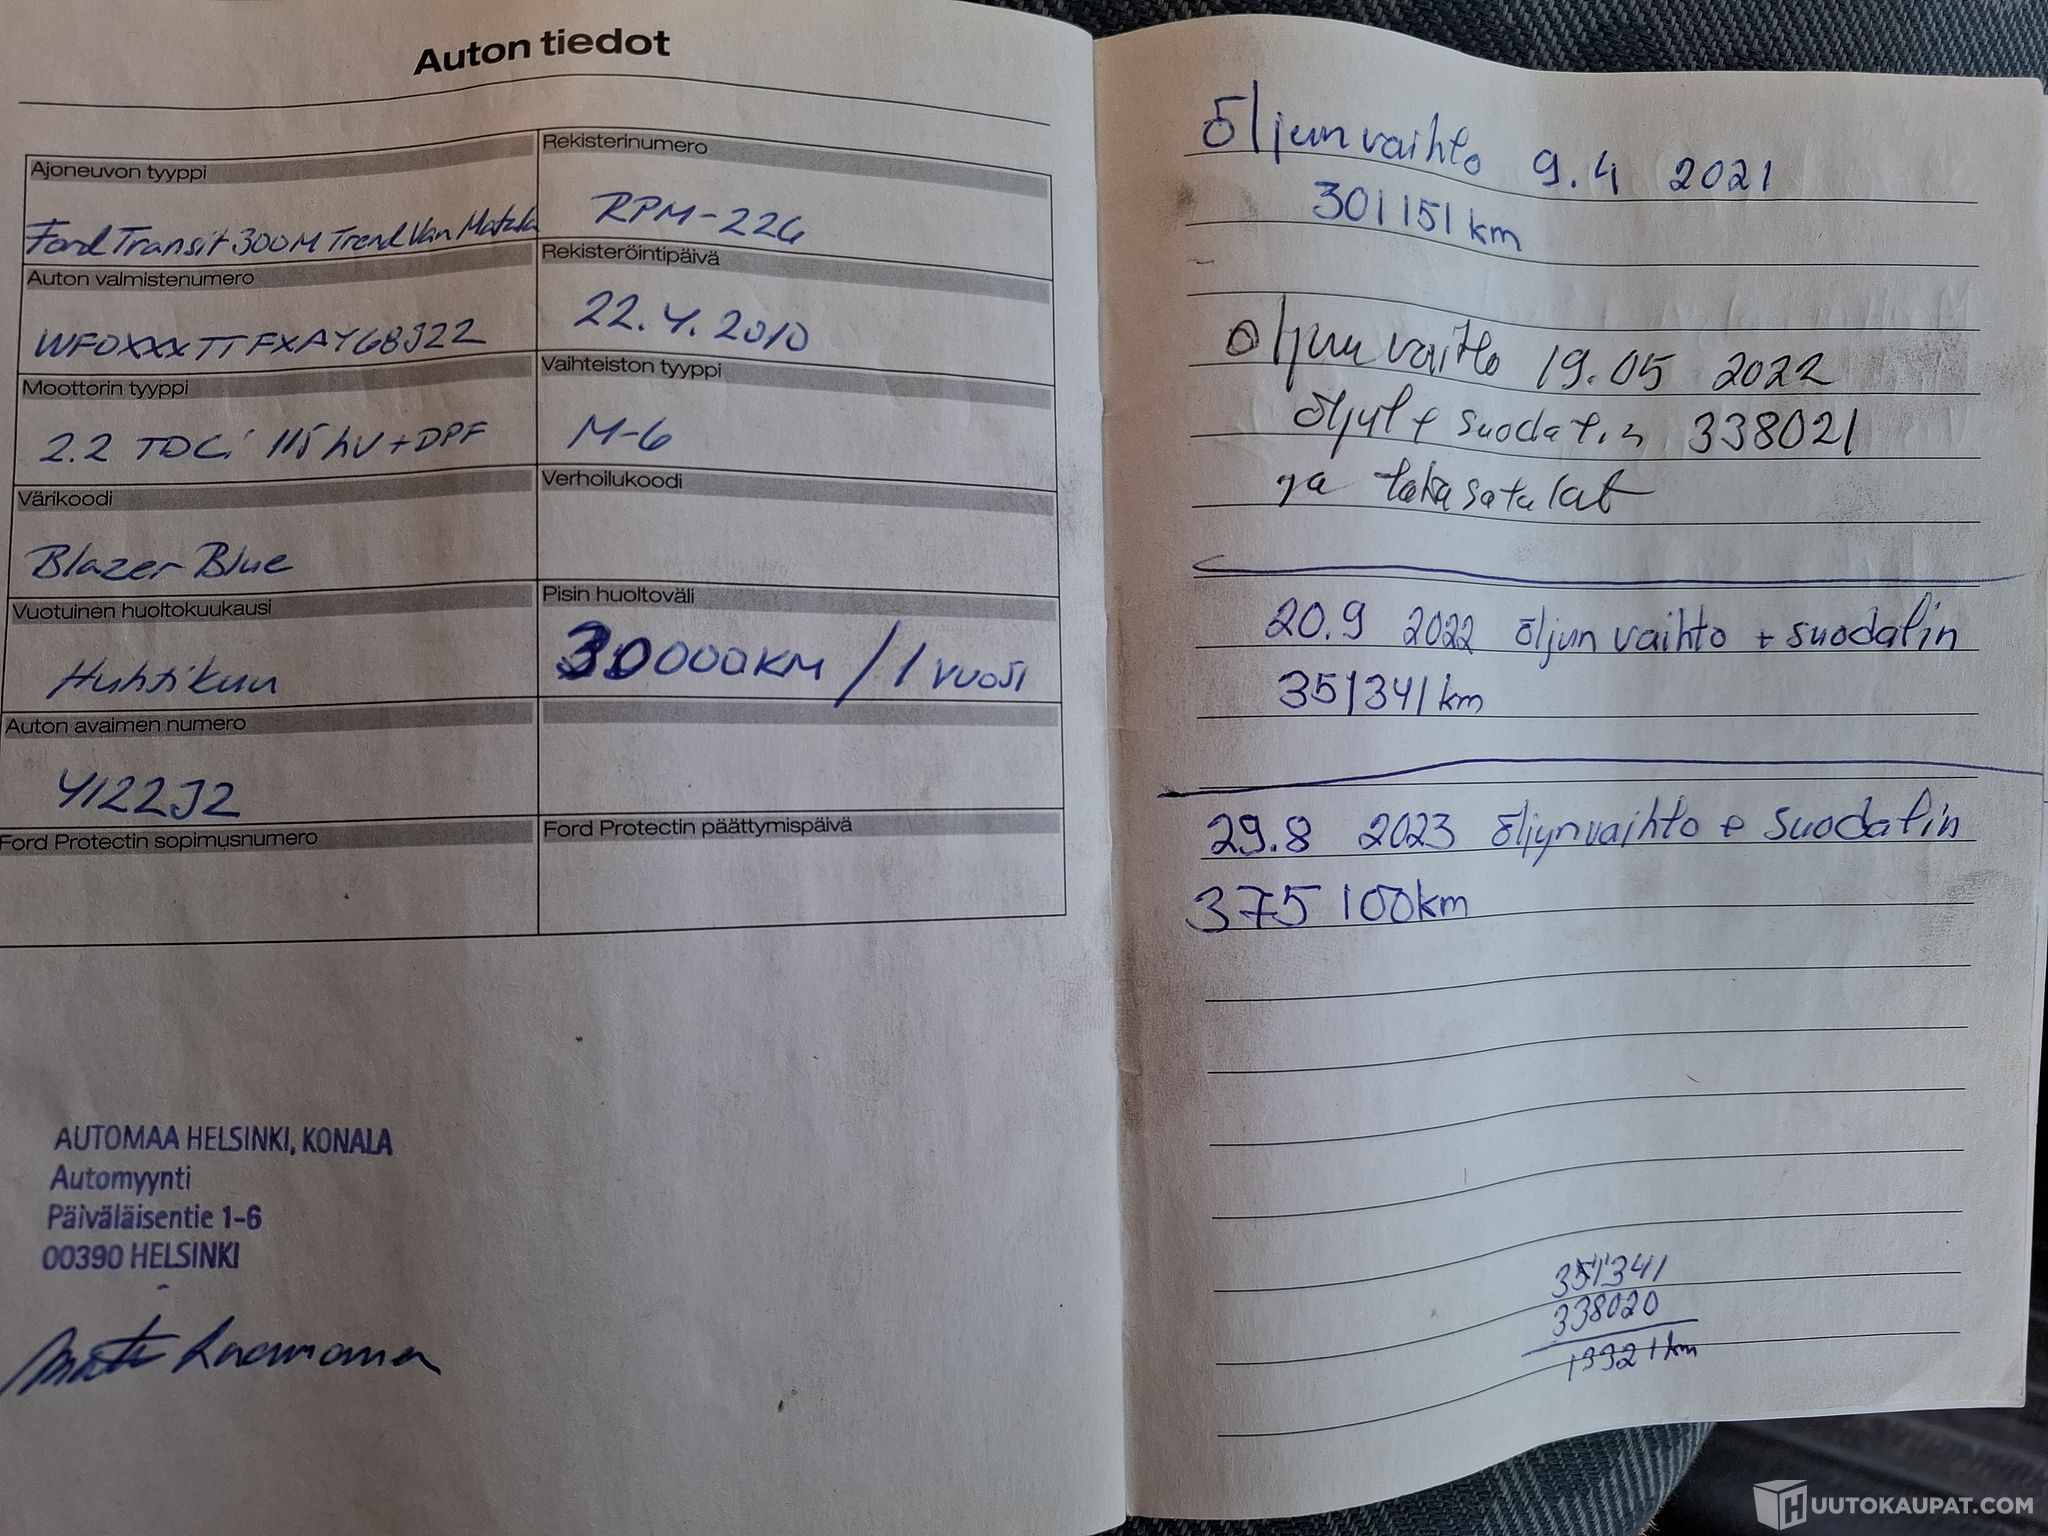 Auton tiedot
Ajoneuvon tyyppi
Ford Transit 300M Trend Van Matala
Rekisterinumero
RPM-226
Auton valmistenumero
WF0XXXTTFXAY68J22
Rekisteröintipäivä
22.4.2010
Moottorin tyyppi
2.2 TDCi 115hv+DPF
Vaihteiston tyyppi
M-6
Värikoodi
Blazer Blue
Verhoilukoodi
Vuotuinen huoltokuukausi
Huhtikuu
Pisin huoltoväli
30000KM / 1 vuosi
Auton avaimen numero
4122J2
Ford Protectin sopimusnumero
Ford Protectin päättymispäivä
AUTOMAA HELSINKI, KONALA
Automyynti
Päiväläisentie 1-6
00390 HELSINKI
Öljun vaihto 9.4 2021
301151 km
öljun vaihto 19.05 2022
338021
ja takasatalat
20.9 2022 öljun vaihto + suodatin
351341 km
29.8 2023 öljynvaihto + suodatin
375 100km
351341
338020
13321 km
HUUTOKAUPAT.COM